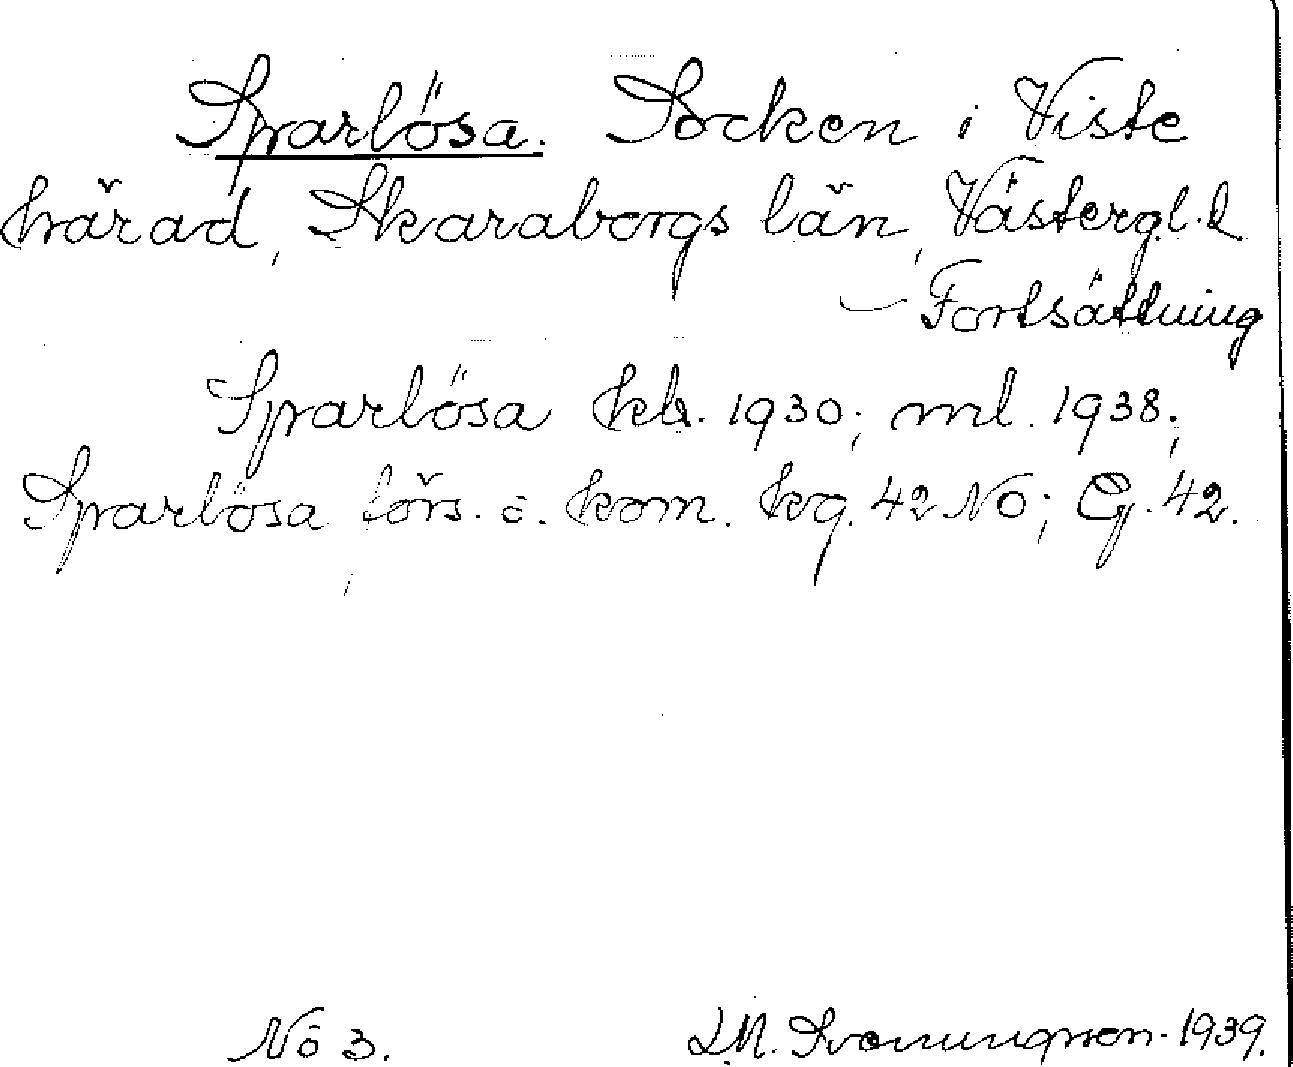 Sparlösa. Socken i Viste
härad, Skaraborgs län, Västergl.d
— Fortsättning
Sparlösa kb. 1930; ml. 1938;
Sparlösa förs. o. kom. kg. 42 NO; Eg. 42.
No 3. 1939.